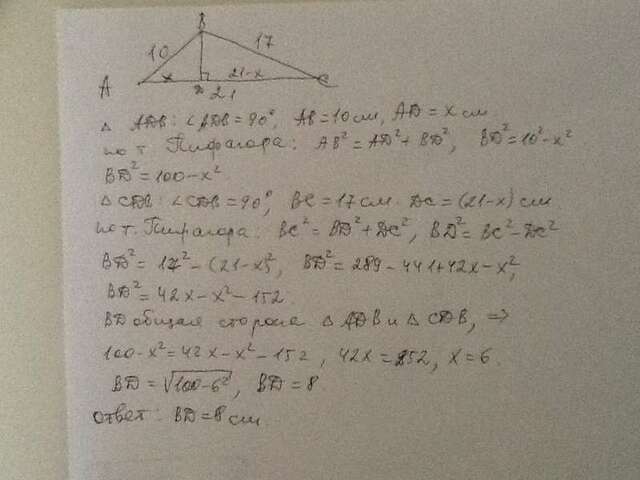 B
10 17
A x 21-x C
D
21
△ ADB: ∠ADB = 90°, AB = 10 см, AD = x см.
по т. Пифагора: AB² = AD² + BD², BD² = 10² - x²
BD² = 100 - x².
△ CDB: ∠CDB = 90°, BC = 17 см. DC = (21-x) см
по т. Пифагора: BC² = BD² + DC², BD² = BC² - DC²
BD² = 17² - (21-x)², BD² = 289 - 441 + 42x - x²,
BD² = 42x - x² - 152.
BD общая сторона △ ADB и △ CDB, ⇒
100 - x² = 42x - x² - 152, 42x = 252, x = 6.
BD = √100-6², BD = 8.
ответ: BD = 8 см.